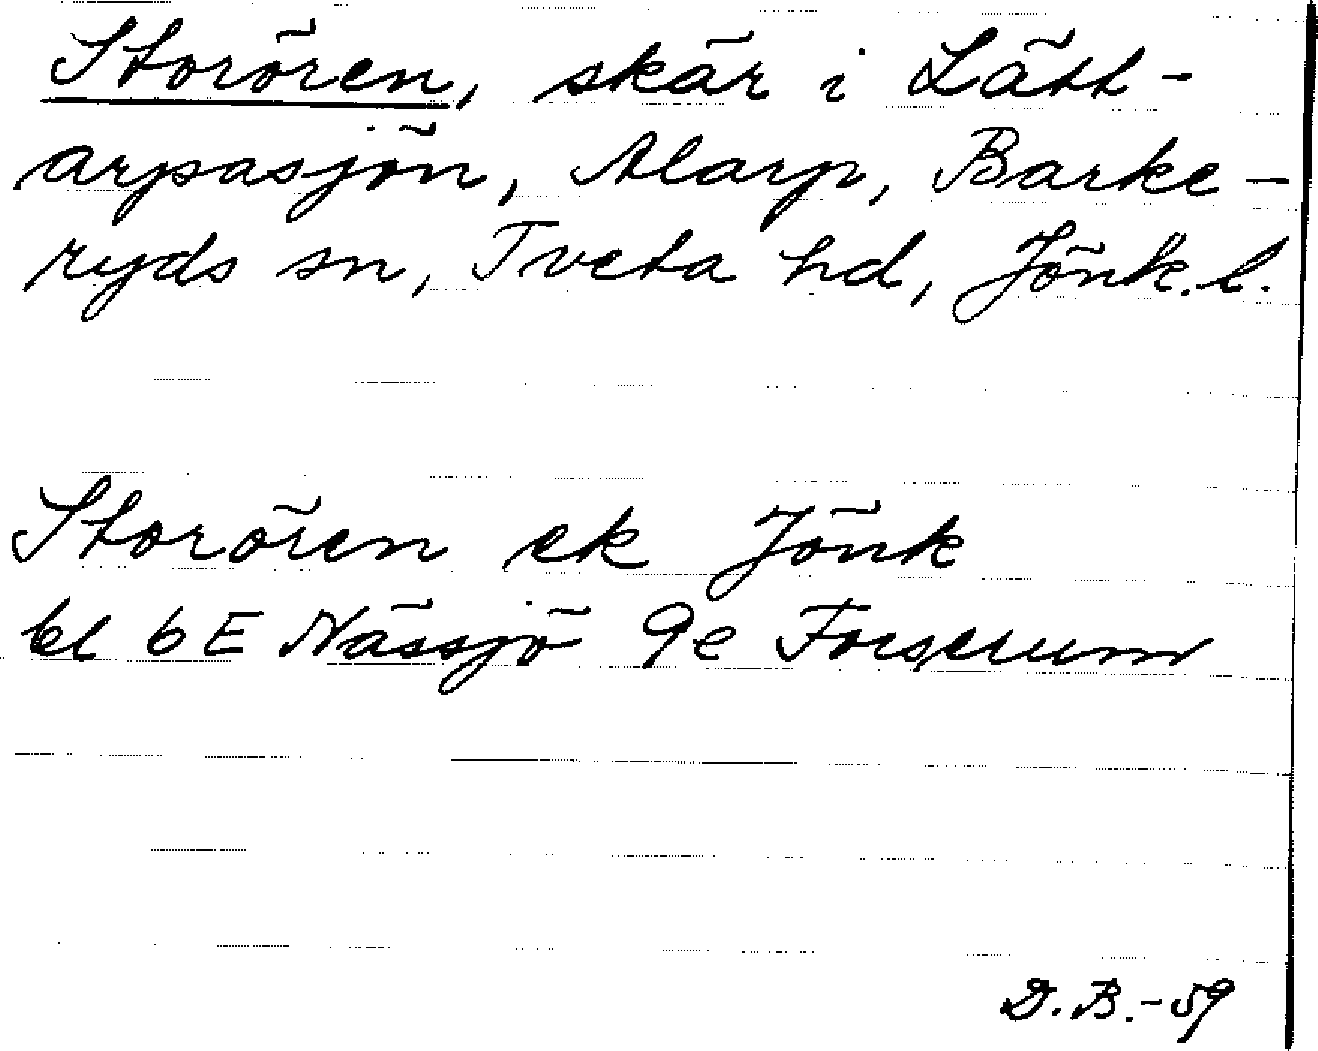 Storören, skär i Lätt-
arpasjön, Alarp, Barke-
ryds sn, Tveta hd, Jönk.l.
Storören ek Jönk
bl 6E Nässjö 9e Forserum
D.B.-59